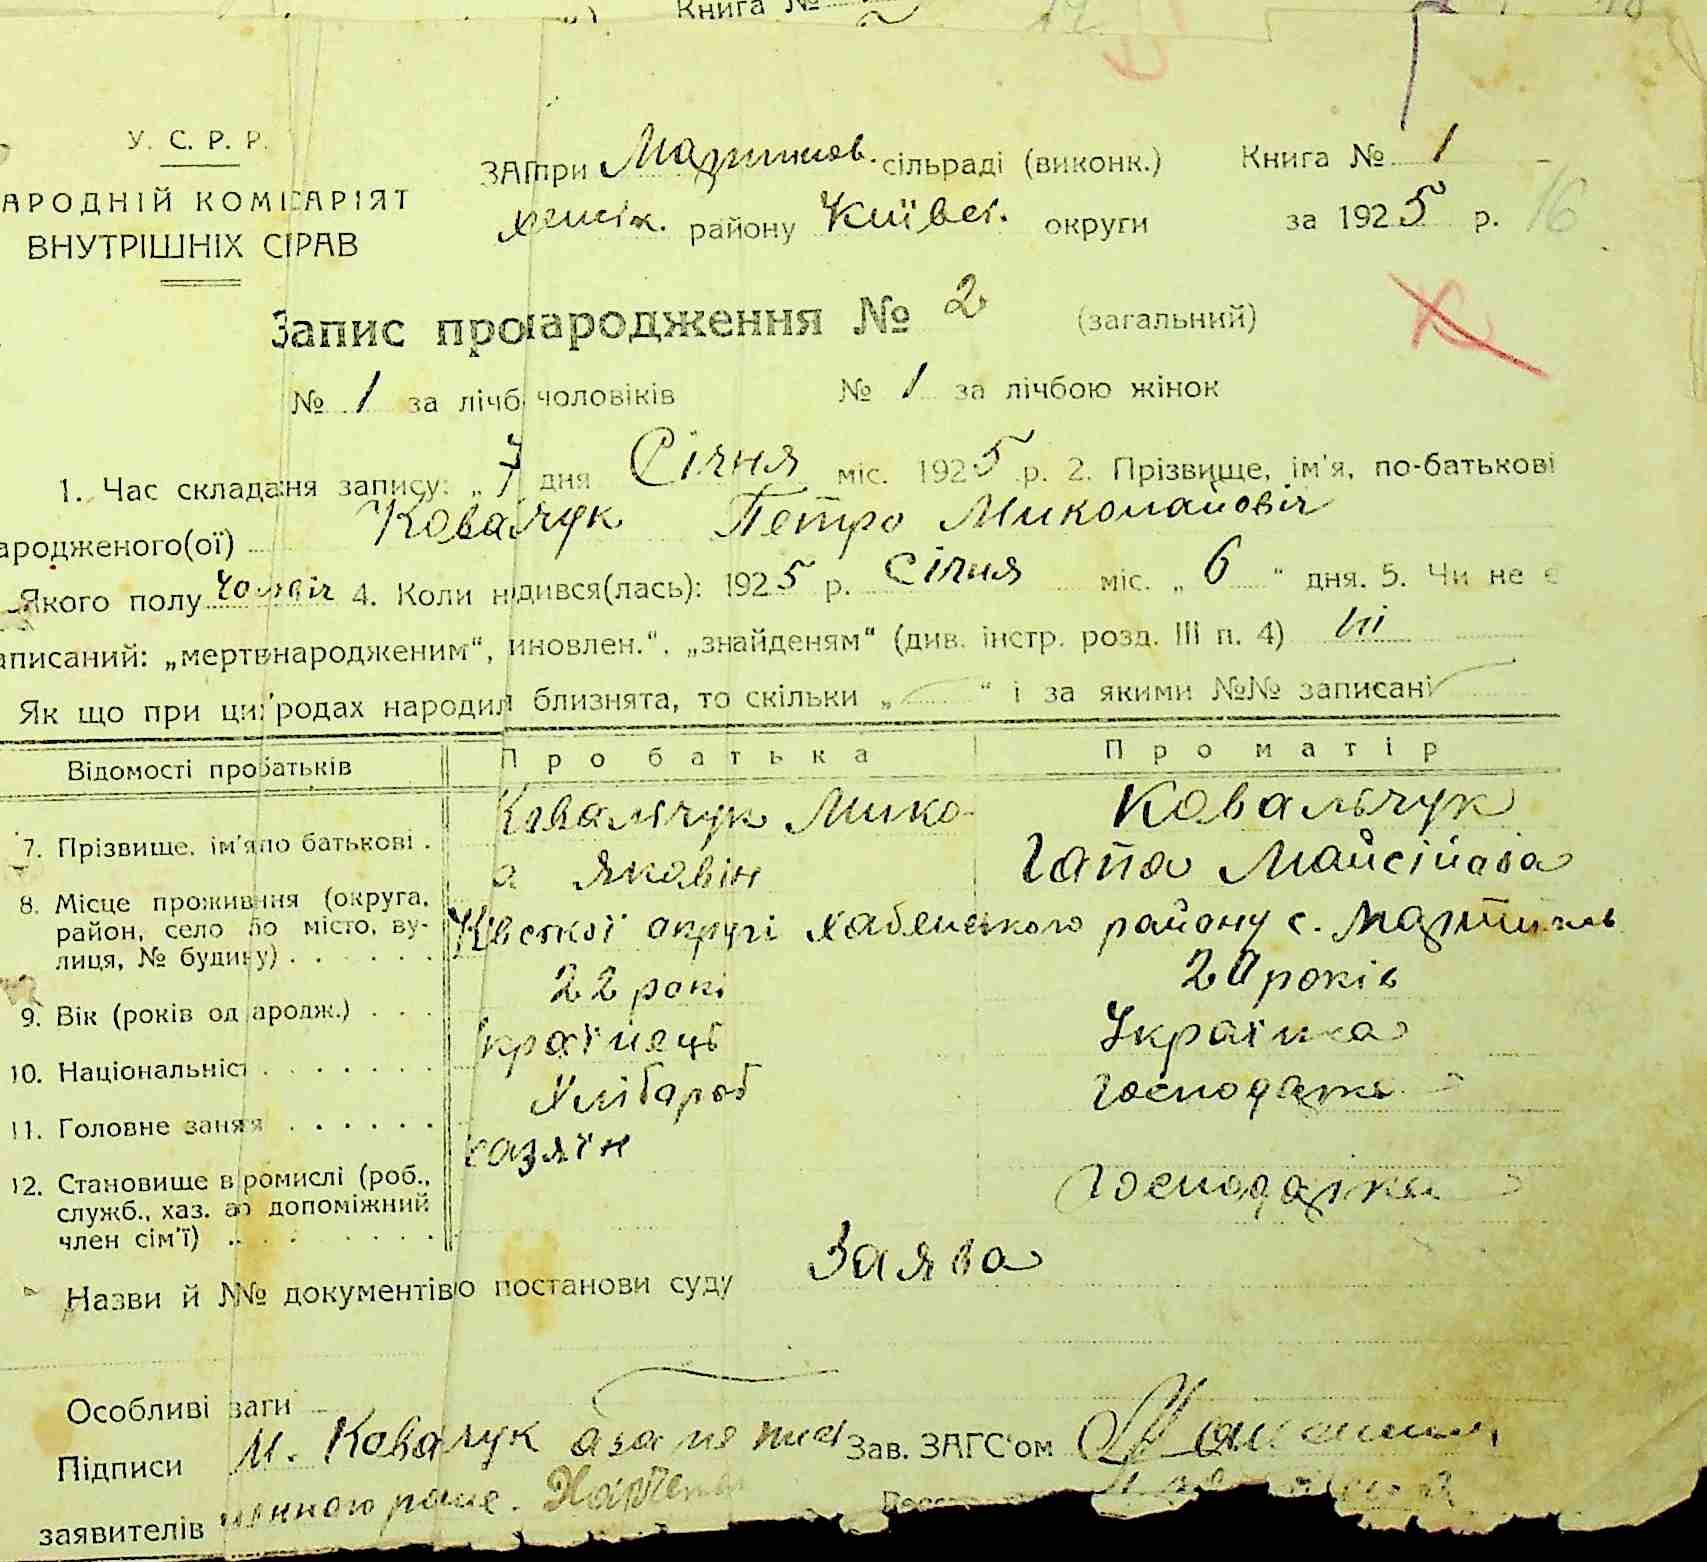 Книга №
У. С. Р. Р.
АРОДНІЙ КОМІСАРІЯТ
ВНУТРІШНІХ СПРАВ
ЗАГ при сільраді (виконк.) Книга № 1
району Київс. округи за 1925 р. 16
Запис про народження № 2 (загальний)
№ 1 за лічб чоловіків № 1 за лічбою жінок
1. Час складання запису: „7 дня Січня міс. 1925 р. 2. Прізвище, ім'я, по-батькові
ародженого(ої) Ковальчук Петро Миколайовіч
Якого полу чоловіч 4. Коли н дився(лась): 1925 р. Січня міс. „ 6 “ дня. 5. Чи не є
аписаний: „мертвнародженим“, иновлен.“, „знайденям“ (див. інстр. розд. III п. 4) ні
Як що при ци родах народил близнята, то скільки „ “ і за якими №№ записані
Відомості про батьків
Про батька
Про матір
7. Прізвище, ім'я по батькові . Ковальчук Мико- Ковальчук
а Яковін Гапа Майсійова
8. Місце проживання (округа,
район, село бо місто, ву-
лиця, № будинку) Квської округі Хабенського району с.
9. Вік (років од ародж.) 22 рокі 20 років
10. Національніст країнець Українка
11. Головне заняя Хлібороб Господарка
12. Становище в ромислі (роб.,
служб., хаз. або допоміжний
член сім'ї) хазяїн Господарка
Назви й №№ документів о постанови суду Заява
Особливі ваги
Підписи М. Ковальчук а за не Зав. ЗАГС'ом
заявителів